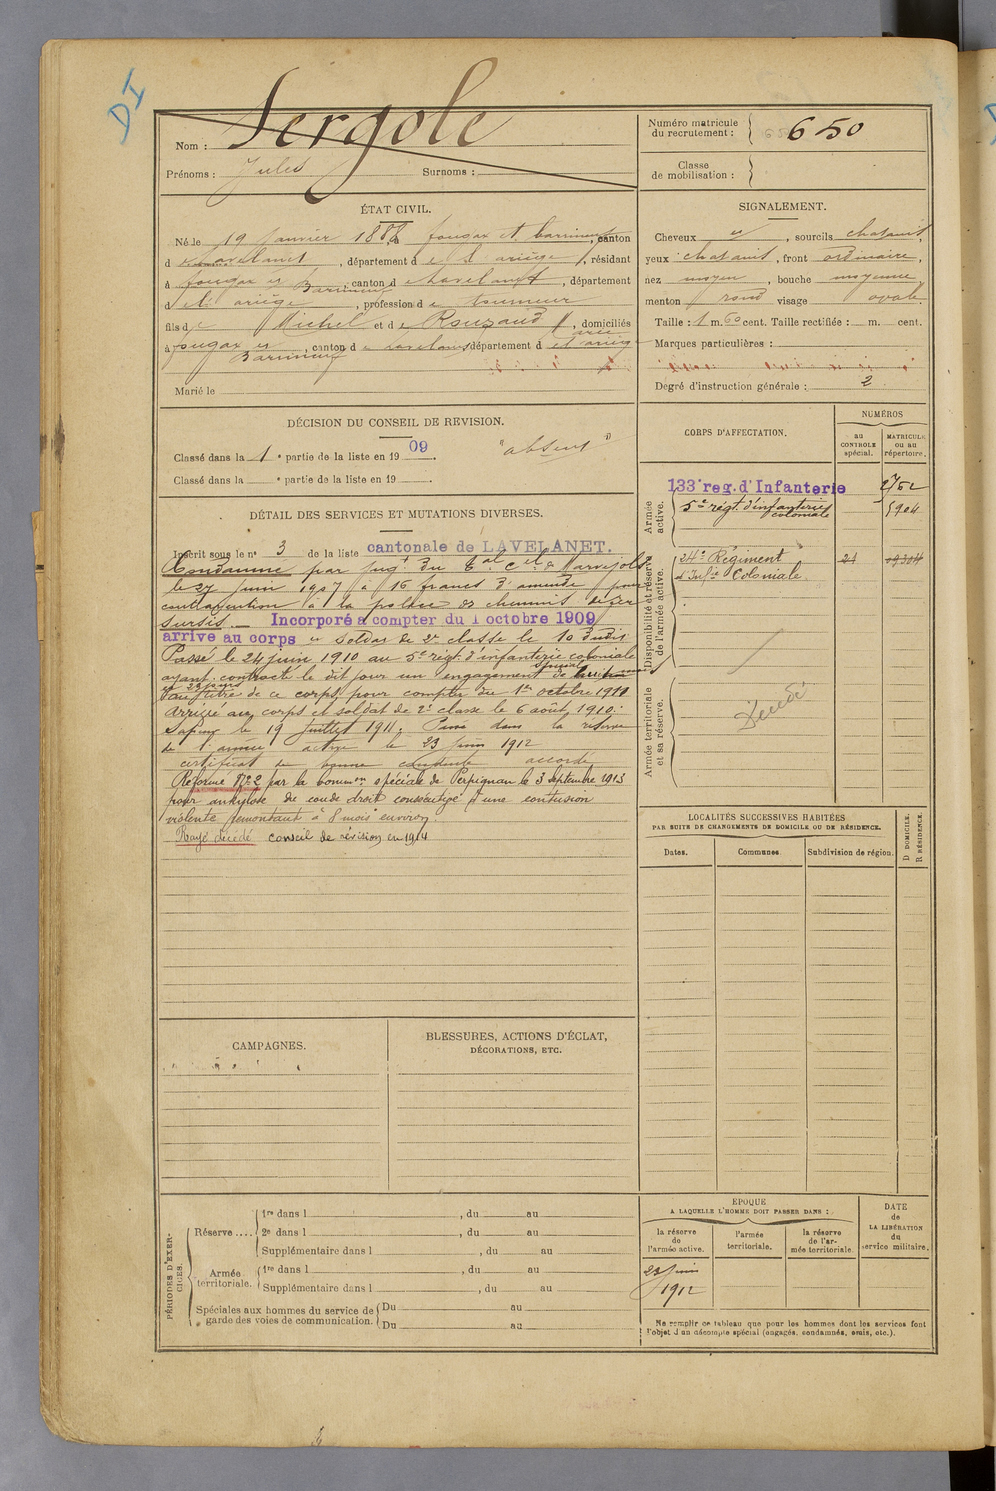 DI
Nom : Sergole
Prénoms : Jules Surnoms :
Numéro matricule du recrutement : 650
Classe de mobilisation :
ÉTAT CIVIL.
Né le 19 janvier 188 à fougax et barrineuf, canton
d Lavelanet, département d e l ariège, résidant
à fougax et Barrineuf, canton d e Lavelanet, département
d el ariège, profession d e tourneur
fils de Michel et d e Rouzaud, domiciliés
à fougax et Barrineuf, canton d e Lavelanet département d el ariège
Marié le
SIGNALEMENT.
Cheveux et, sourcils chatains,
yeux chatains, front ordinaire,
nez moyen, bouche moyenne
menton rond visage ovale.
Taille : 1 m. 60 cent. Taille rectifiée : m. cent.
Marques particulières :
Degré d'instruction générale : 2
DÉCISION DU CONSEIL DE REVISION.
Classé dans la 1e partie de la liste en 1909. "absent"
Classé dans la e partie de la liste en 19 .
DÉTAIL DES SERVICES ET MUTATIONS DIVERSES.
Inscrit sous le n° 3 de la liste cantonale de LAVELANET.
Condamné par jugt du Bal Cel de Marvejols
le 27 juin 1907 à 16 francs d'amende pour
contravention à la police des chemins de fer
sursis. — Incorporé à compter du 1 octobre 1909
arrivé au corps et soldat de 2e classe le 10 dudit
Passé le 24 juin 1910 au 5e régt d'infanterie coloniale
ayant contracté le dit jour un engagement spécial de
et 23 jours au titre de ce corps pour compter du 1er octobre 1910
Arrivé au corps et soldat de 2e classe le 6 août 1910.
Sapeur le 19 juillet 1911. Passé dans la réserve
de l'armée active le 23 juin 1912
certificat de bonne conduite accordé
Réformé N° 2 par la common spéciale de Perpignan le 3 septembre 1913
pour ankylose du coude droit consécutive à une contusion
violente remontant à 8 mois environ.
Rayé décédé conseil de révision en 1914
CORPS D'AFFECTATION.
NUMÉROS
au CONTROLE spécial.
MATRICULE ou au répertoire.
Armée active.
133e reg. d'Infanterie 2762
5e régt. d'infanterie coloniale 5904
Disponibilité et réserve de l'armée active.
24e Régiment d'Infie Coloniale 21 09304
Armée territoriale et sa réserve.
Décédé
LOCALITÉS SUCCESSIVES HABITÉES
PAR SUITE DE CHANGEMENTS DE DOMICILE OU DE RÉSIDENCE.
Dates. Communes. Subdivision de région.
D DOMICILE.
R RÉSIDENCE.
CAMPAGNES.
BLESSURES, ACTIONS D'ÉCLAT,
DÉCORATIONS, ETC.
PÉRIODES D'EXERCICES.
Réserve .... 1re dans l , du au
2e dans l , du au
Supplémentaire dans l , du au
Armée territoriale. 1re dans l , du au
Supplémentaire dans l , du au
Spéciales aux hommes du service de garde des voies de communication. Du au
Du au
EPOQUE
A LAQUELLE L'HOMME DOIT PASSER DANS :
la réserve de l'armée active.
l'armée territoriale.
la réserve de l'armée territoriale.
DATE de LA LIBÉRATION du service militaire.
23 juin
1912
Ne remplir ce tableau que pour les hommes dont les services font
l'objet d'un décompte spécial (engagés, condamnés, omis, etc.).